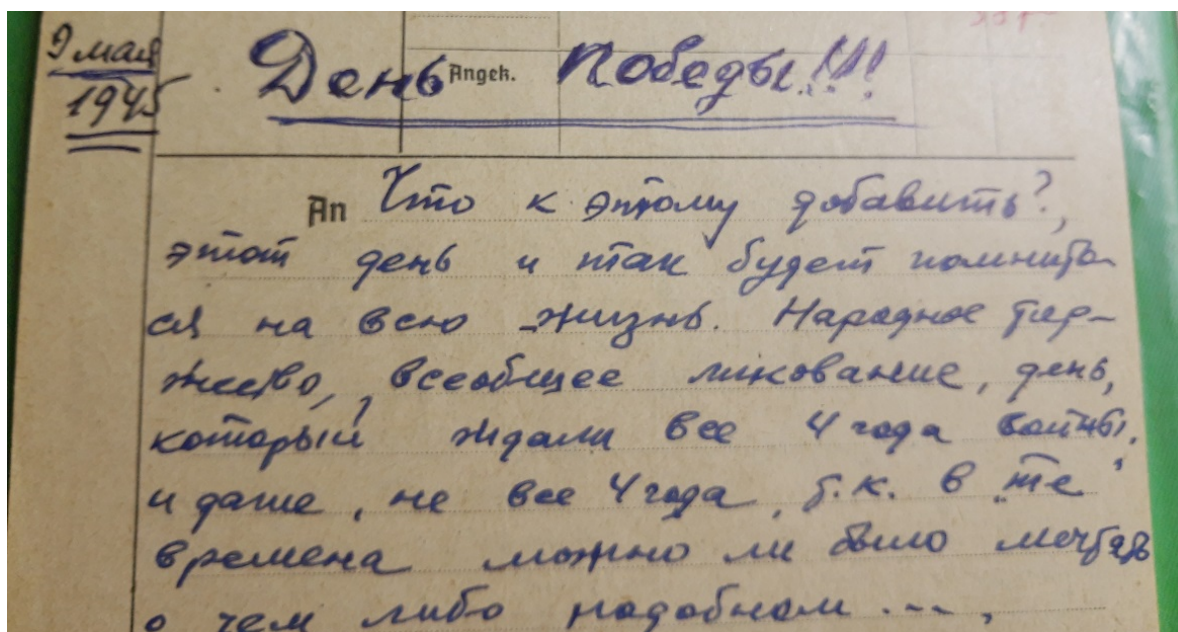 9 мая
1945
День Победы!!!
Angek.
An Что к этому добавить?,
этот день и так будет помнить-
ся на всю жизнь. Народное тор-
жество, всеобщее ликование, день,
который ждали все 4 года войны,
и даже, не все 4 года, т.к. в "те"
времена можно ли было мечтать
о чем либо подобном ...,